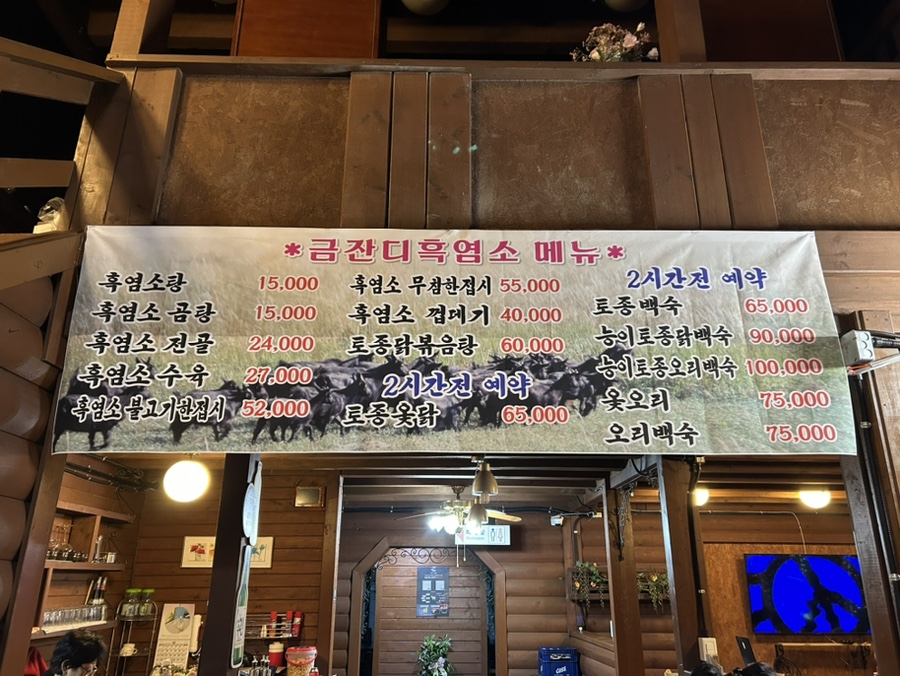 *금잔디흑염소 메뉴*
흑염소탕 15,000
흑염소 곰탕 15,000
흑염소 전골 24,000
흑염소 수육 27,000
흑염소 불고기한접시 52,000
흑염소 무침한접시 55,000
흑염소 껍데기 40,000
토종닭볶음탕 60,000
2시간전 예약
토종옻닭 65,000
2시간전 예약
토종백숙 65,000
능이토종닭백숙 90,000
능이토종오리백숙 100,000
옻오리 75,000
오리백숙 75,000
3